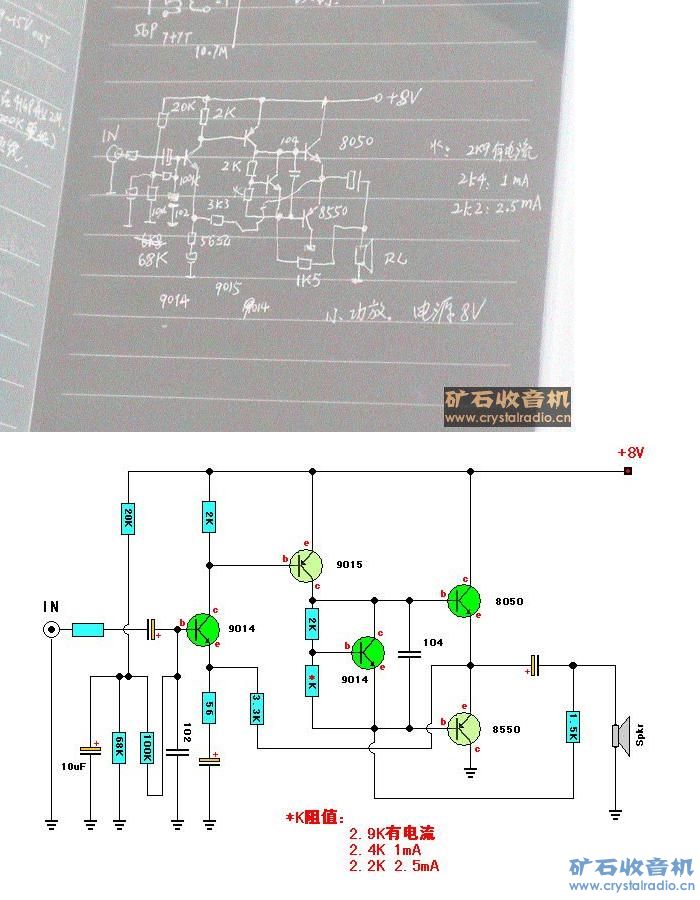 +5V out
56P
7+7T
10.7M
+8V
20K
2K
IN
104
8050
*: 2K9有电流
2K
2k4: 1mA
100K
2k2: 2.5mA
102
3K3
8550
68K
565Ω
1K5
RL
9014
9015
9014
小功放. 电源8V
矿石收音机
www.crystalradio.cn
+8V
20K
2K
e
b
9015
c
IN
c
b
9014
e
2K
c
b
8050
e
104
*K
9014
56
3.3K
e
b
8550
c
1.5K
Spkr
10uF
68K
100K
102
*K阻值:
2.9K有电流
2.4K 1mA
2.2K 2.5mA
矿石收音机
www.crystalradio.cn